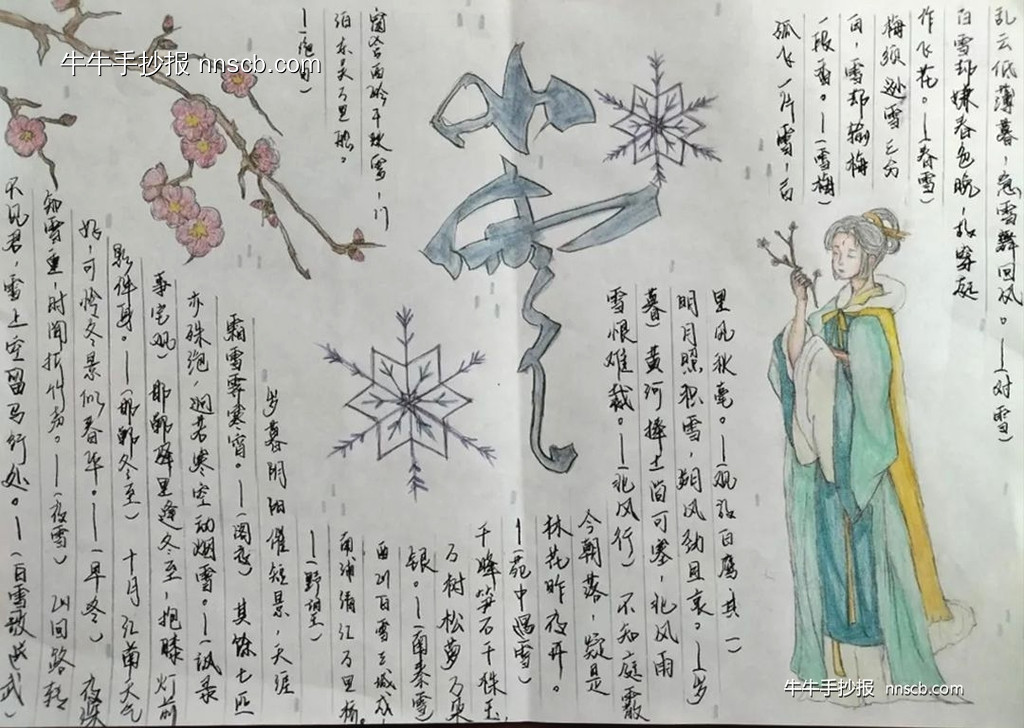 乱云低薄暮，急雪舞回风。——（对雪）
白雪却嫌春色晚，故穿庭
作飞花。——（春雪）
梅须逊雪三分
白，雪却输梅
一段香。——（雪梅）
孤飞一片雪，百
里见秋毫。——（观放白鹰其一）
明月照积雪，朔风劲且哀。——（岁
暮）黄河捧土尚可塞，北风雨
雪恨难裁。——（北风行）不知庭霰
今朝落，疑是
林花昨夜开。
——（苑中遇雪）
千峰笋石千株玉，
万树松萝万朵
银。——（南秦雪）
西山白雪三城戍，
南浦清江万里桥。
——（野望）
岁暮阴阳催短景，天涯
霜雪霁寒宵。——（阁夜）其馀七匹
亦殊绝，迥若寒空动烟雪。——（讽录
事宅观）邯郸驿里逢冬至，抱膝灯前
影伴身。——（邯郸冬至）十月江南天气
好，可怜冬景似春华。——（早冬）夜深
知雪重，时闻折竹声。——（夜雪）山回路转
不见君，雪上空留马行处。——（白雪歌送武）
窗含西岭千秋雪，门
泊东吴万里船。
——（绝句）
小雪
牛牛手抄报 nnscb.com
牛牛手抄报 nnscb.com